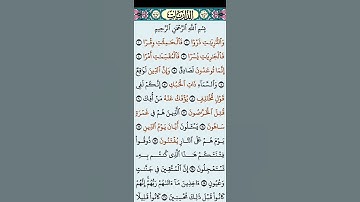 الذاريات
بِسْمِ ٱللَّهِ ٱلرَّحْمَٰنِ ٱلرَّحِيمِ
وَٱلذَّٰرِيَٰتِ ذَرْوًا ۝١ فَٱلْحَٰمِلَٰتِ وِقْرًا ۝٢
فَٱلْجَٰرِيَٰتِ يُسْرًا ۝٣ فَٱلْمُقَسِّمَٰتِ أَمْرًا ۝٤
إِنَّمَا تُوعَدُونَ لَصَادِقٌ ۝٥ وَإِنَّ ٱلدِّينَ لَوَٰقِعٌ
۝٦ وَٱلسَّمَآءِ ذَاتِ ٱلْحُبُكِ ۝٧ إِنَّكُمْ لَفِى
قَوْلٍ مُّخْتَلِفٍ ۝٨ يُؤْفَكُ عَنْهُ مَنْ أُفِكَ ۝٩
قُتِلَ ٱلْخَرَّٰصُونَ ۝١٠ ٱلَّذِينَ هُمْ فِى غَمْرَةٍ
سَاهُونَ ۝١١ يَسْـَٔلُونَ أَيَّانَ يَوْمُ ٱلدِّينِ ۝١٢
يَوْمَ هُمْ عَلَى ٱلنَّارِ يُفْتَنُونَ ۝١٣ ذُوقُوا۟
فِتْنَتَكُمْ هَٰذَا ٱلَّذِى كُنتُم بِهِۦ
تَسْتَعْجِلُونَ ۝١٤ إِنَّ ٱلْمُتَّقِينَ فِى جَنَّٰتٍ
وَعُيُونٍ ۝١٥ ءَاخِذِينَ مَآ ءَاتَىٰهُمْ رَبُّهُمْ إِنَّهُمْ
كَانُوا۟ قَبْلَ ذَٰلِكَ مُحْسِنِينَ ۝١٦ كَانُوا۟ قَلِيلًا